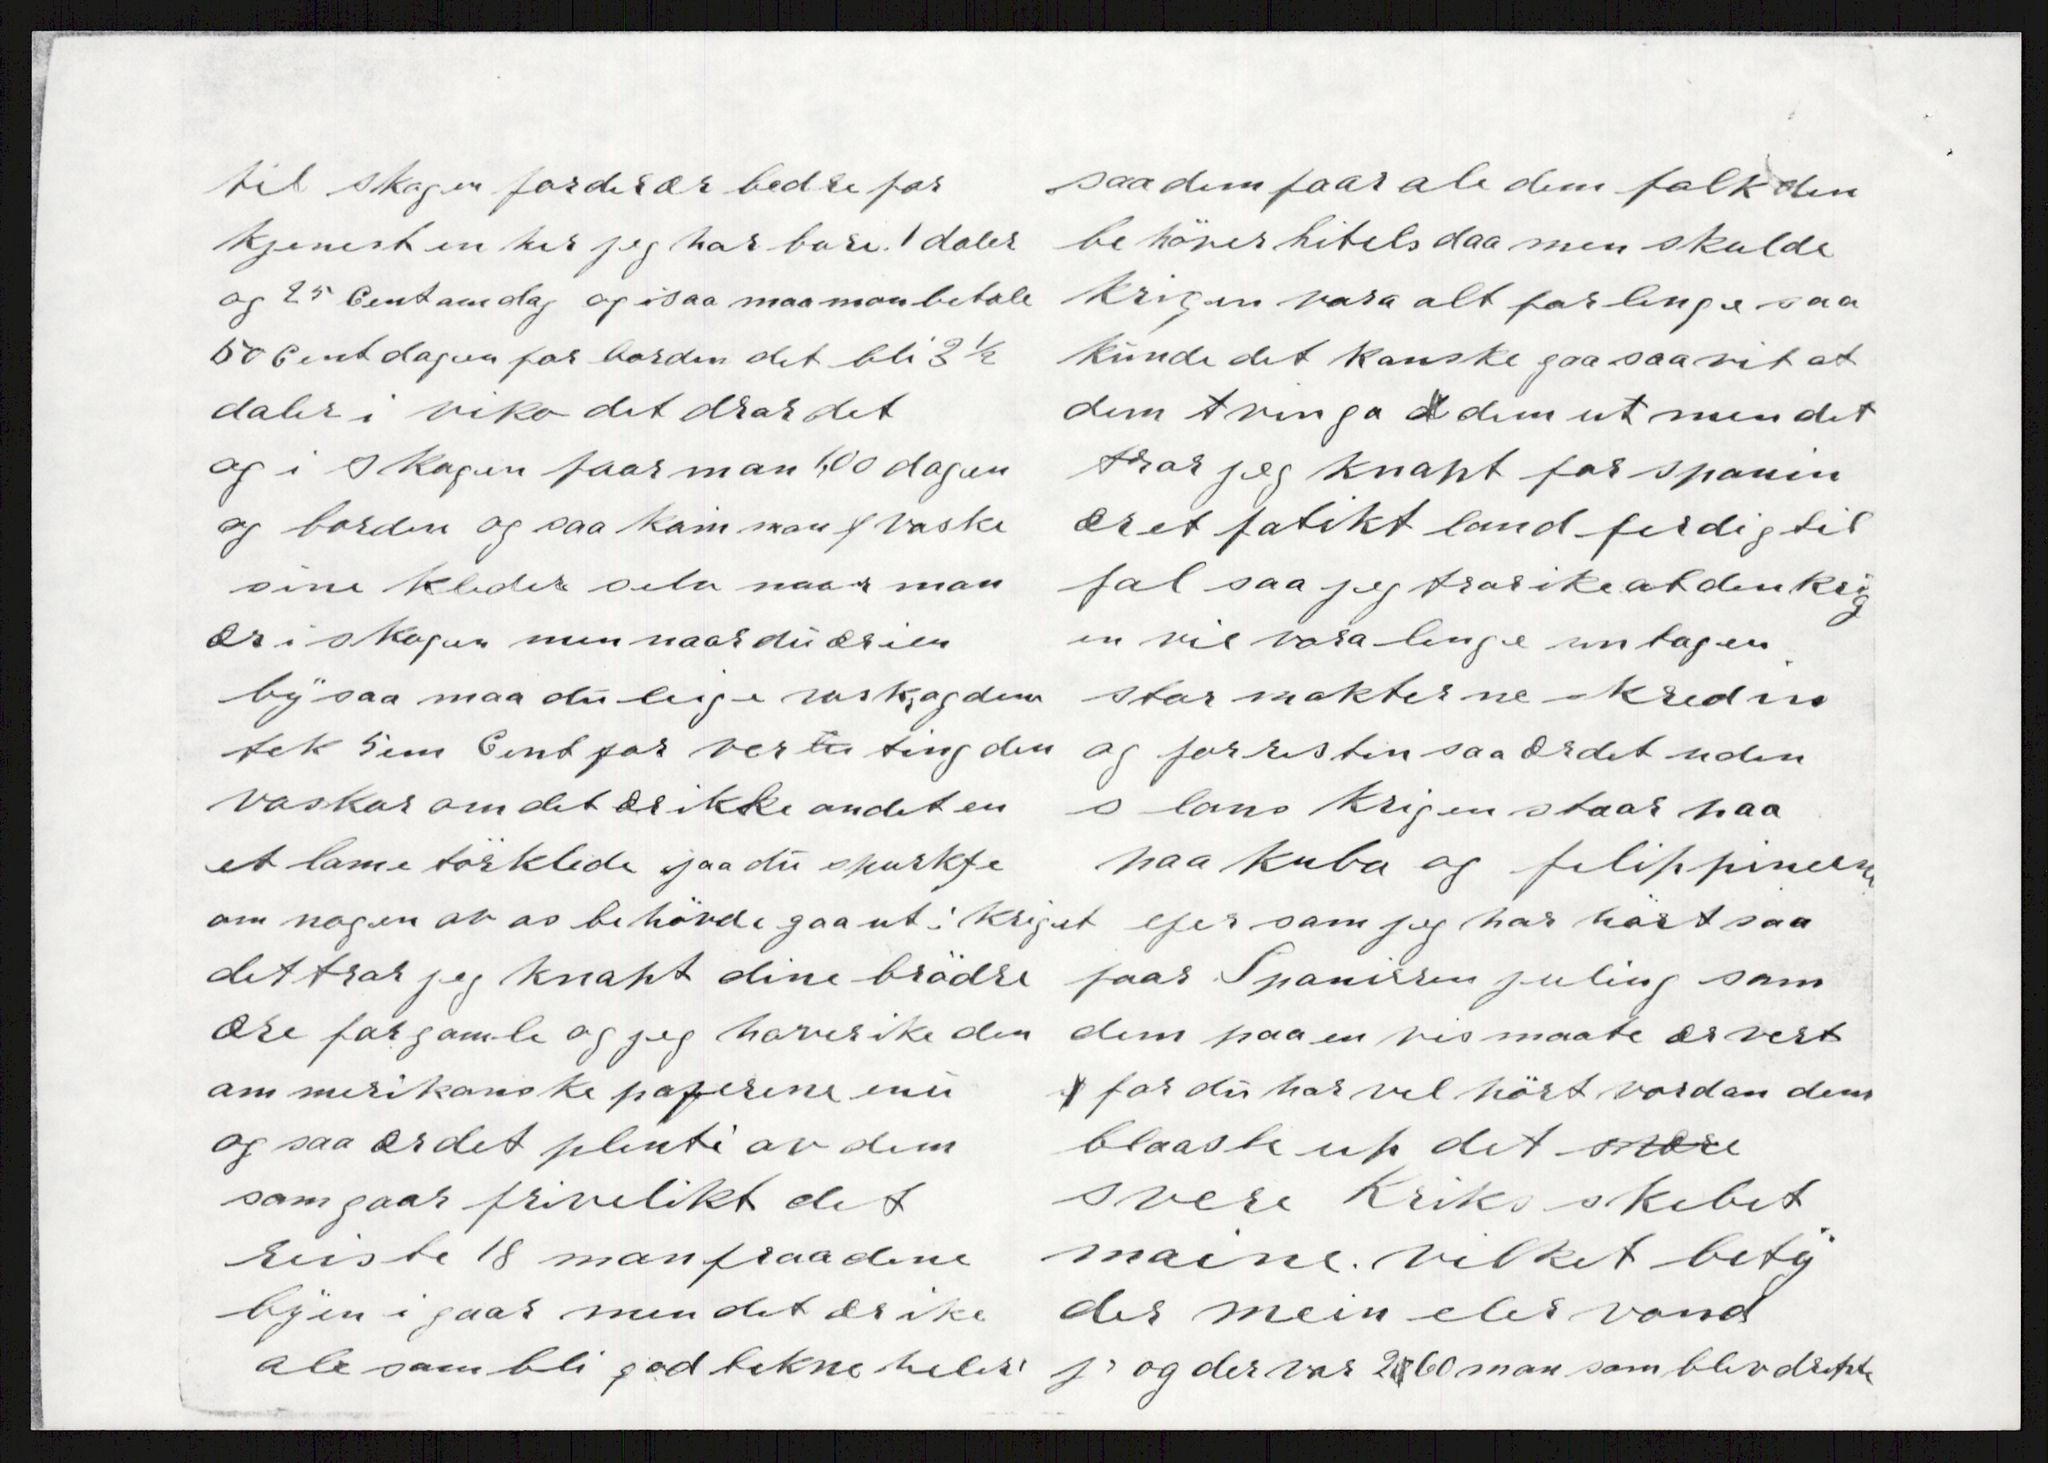 til skogen for der ær bedre for
kjenest en her jeg har bare 1 daler
og 25 Cent am dag og isaa maa man betale
50 Cent dagen for borden det bli 3 ½
daler i viko det drar det
og i skogen faar man 1,00 dagen
og borden og saa kain man vaske
sine kleder selv naar man
ær i skogen men naar dü ær i en
bÿ saa maa dü leige vask, og dem
tek 5 em Cent for ver ting den
vaskar om det ær ikke andet en
et lome törklede jaa dü spurkje
om nogen av os behövde gaa ut i kriget
det tror jeg knapt dine brödre
ære for gamle og jeg haver ike den
ammerikanske paperene enü
og saa ær det plenti av dem
som gaar frivelikt det
reiste 18 man fraa dene
bÿen i gaar men det ær ike
ale som bli god tekne heler
saa dem faar ale dem folk den
behöver hitels daa men skulde
krigen vara alt for lenge saa
künde det kanske gaa saa vit at
dem tvinga dem ut men det
tror jeg knapt for spanin
ær et fatikt land ferdig til
fal saa jeg tror ike at den krig
en vil vara lenge un tagen
stor makterne skred in
og forresten saa ær det uden
s lans krigen staar paa
paa kuba og felippinerne
efer som jeg har hört saa
faar Spanieren juling som
dem paa en vis maate ær vert
for dü har vel hört vordan dem
blaaste up det svære
svere Kriks skebet
maine. vilket betÿ
der mein eler vond
j og der var 260 man som blev drepte